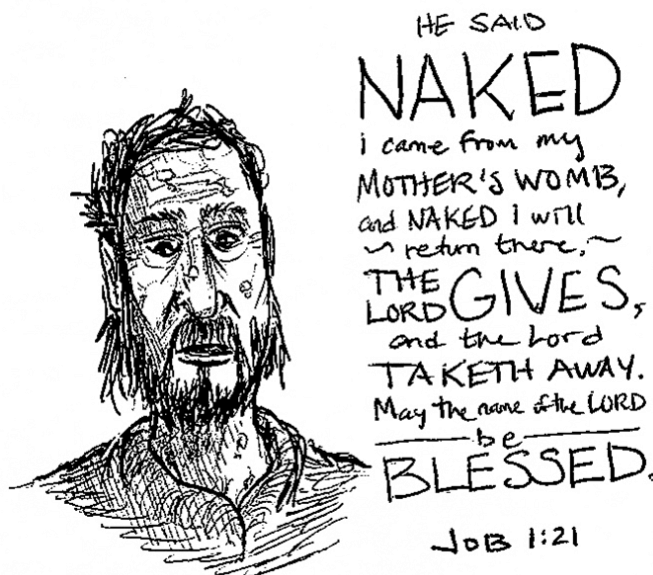 HE SAID
NAKED
i came from my
MOTHER'S WOMB,
and NAKED I will
~ return there, ~
THE LORD GIVES,
and the Lord
TAKETH AWAY.
May the name of the LORD
be
BLESSED.
JOB 1:21